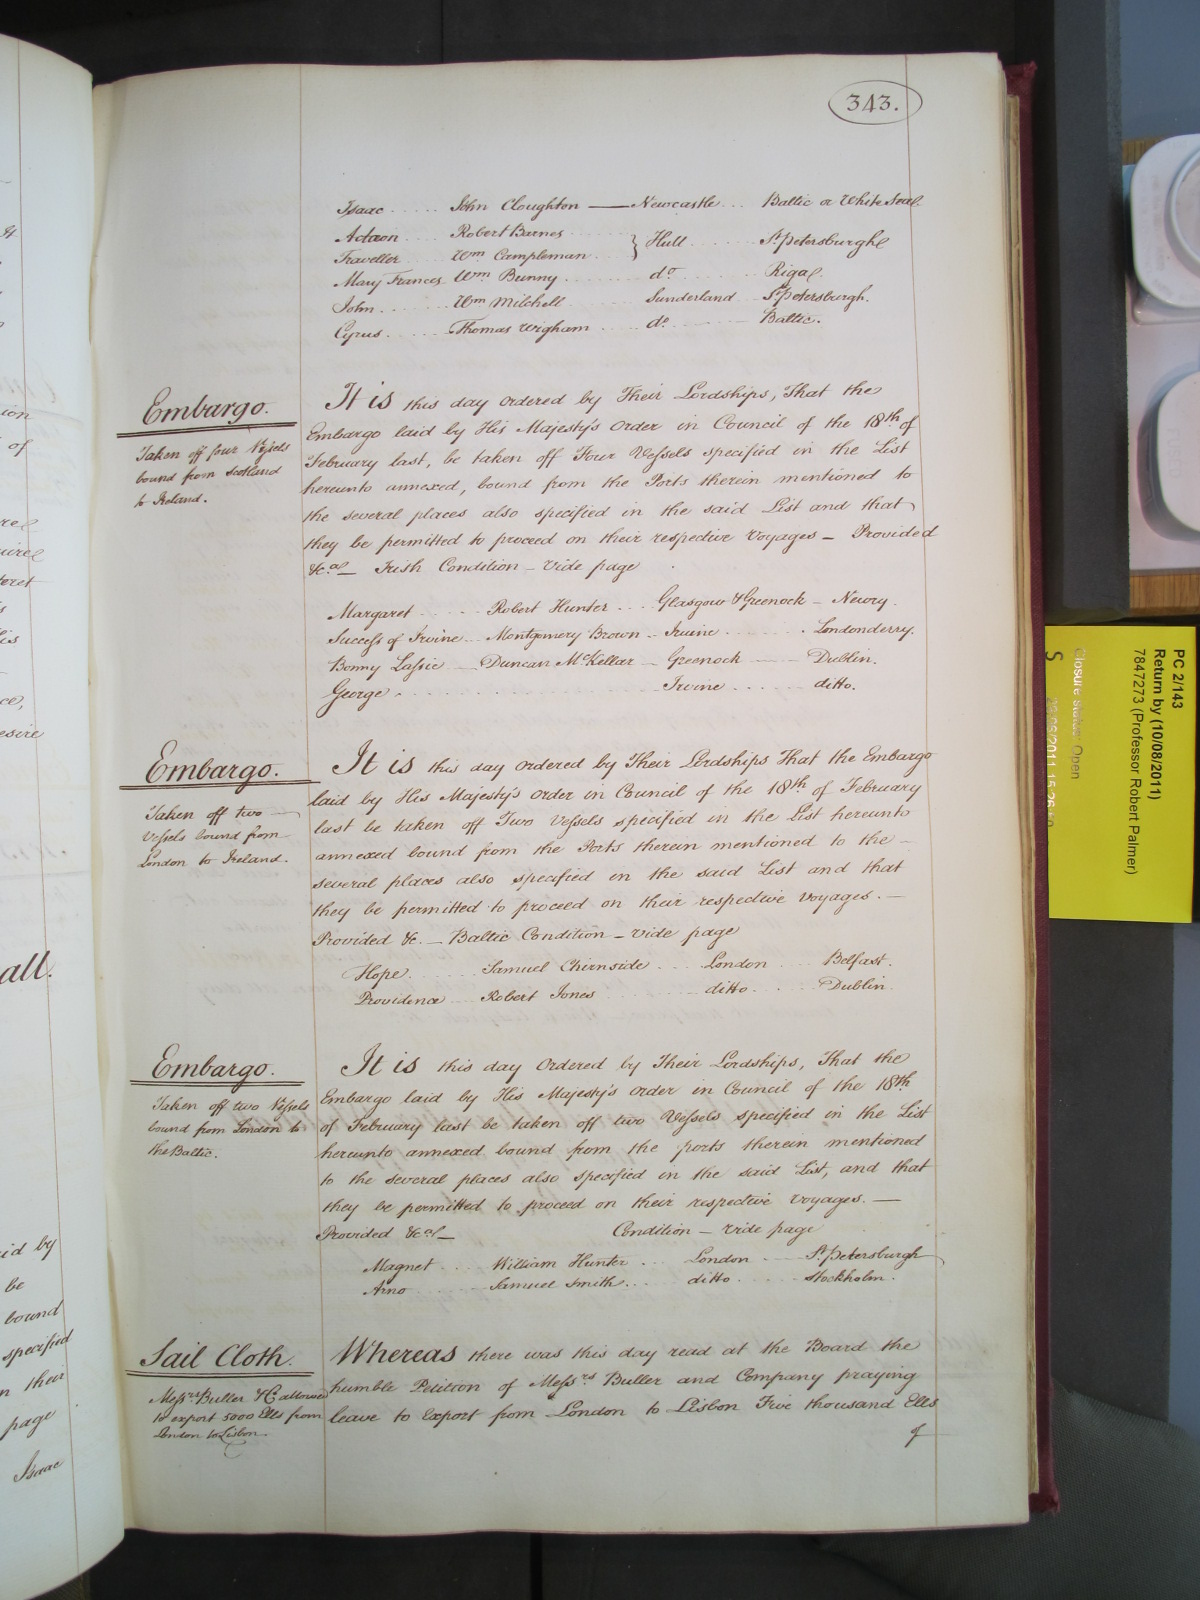 343.
Isaac ..... John Cloughton — Newcastle ... Baltic or White Sea
Adaon .... Robert Barnes ......
Traveller .. Wm Campleman .. } Hull ...... St Petersburgh
Mary Frances Wm Bunny ........ do ........ Riga
John ....... Wm Mitchell ....... Sunderland .. St Petersburgh.
Cyrus ...... Thomas Wigham .... do ........ Baltic.
Embargo.
Taken off four Vessels
bound from Scotland
to Ireland.
It is this day ordered by Their Lordships, That the
Embargo laid by His Majesty's Order in Council of the 18th of
February last, be taken off Four Vessels specified in the List
hereunto annexed, bound from the Ports therein mentioned to
the several places also specified in the said List and that
they be permitted to proceed on their respective Voyages — Provided
&c.al — Irish Condition — Vide page
Margaret ..... Robert Hunter .... Glasgow & Greenock — Newry.
Success of Irvine — Montgomery Brown — Irvine ........ Londonderry.
Bonny Lassie — Duncan McKellar — Greenock — Dublin.
George . ................ Irvine ...... ditto.
Embargo.
Taken off two
Vessels bound from
London to Ireland.
It is this day ordered by Their Lordships That the Embargo
laid by His Majesty's Order in Council of the 18th of February
last be taken off Two Vessels specified in the List hereunto
annexed bound from the Ports therein mentioned to the —
several places also specified in the said List and that
they be permitted to proceed on their respective Voyages. —
Provided &c. — Baltic Condition — vide page
Hope. ...... Samuel Chirnside .... London ..... Belfast.
Providence .... Robert Jones ........ ditto ...... Dublin.
Embargo.
Taken off two Vessels
bound from London to
the Baltic.
It is this day Ordered by Their Lordships, That the
Embargo laid by His Majesty's Order in Council of the 18th
of February last be taken off two Vessels specified in the List
hereunto annexed bound from the ports therein mentioned
to the several places also specified in the said List, and that
they be permitted to proceed on their respective Voyages. —
Provided &c.al — Condition — vide page
Magnet ..... William Hunter ... London .... St Petersburgh
Arno ....... Samuel Smith .... ditto ...... Stockholm.
Sail Cloth.
Messrs Buller & Co allowed
to export 5000 Ells from
London to Lisbon.
Whereas there was this day read at the Board the
humble Petition of Messrs Buller and Company praying
leave to Export from London to Lisbon Five thousand Ells
of
all.
id by
be
bound
specified
n their
page
Isaac
PC 2/143
Return by (10/08/2011)
7847273 (Professor Robert Palmer)
Closure status: Open
S